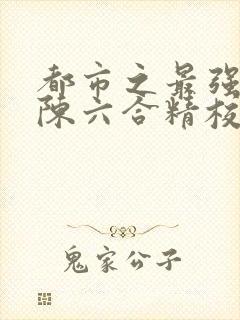 都市之最强
陈六合精校
鬼家公子